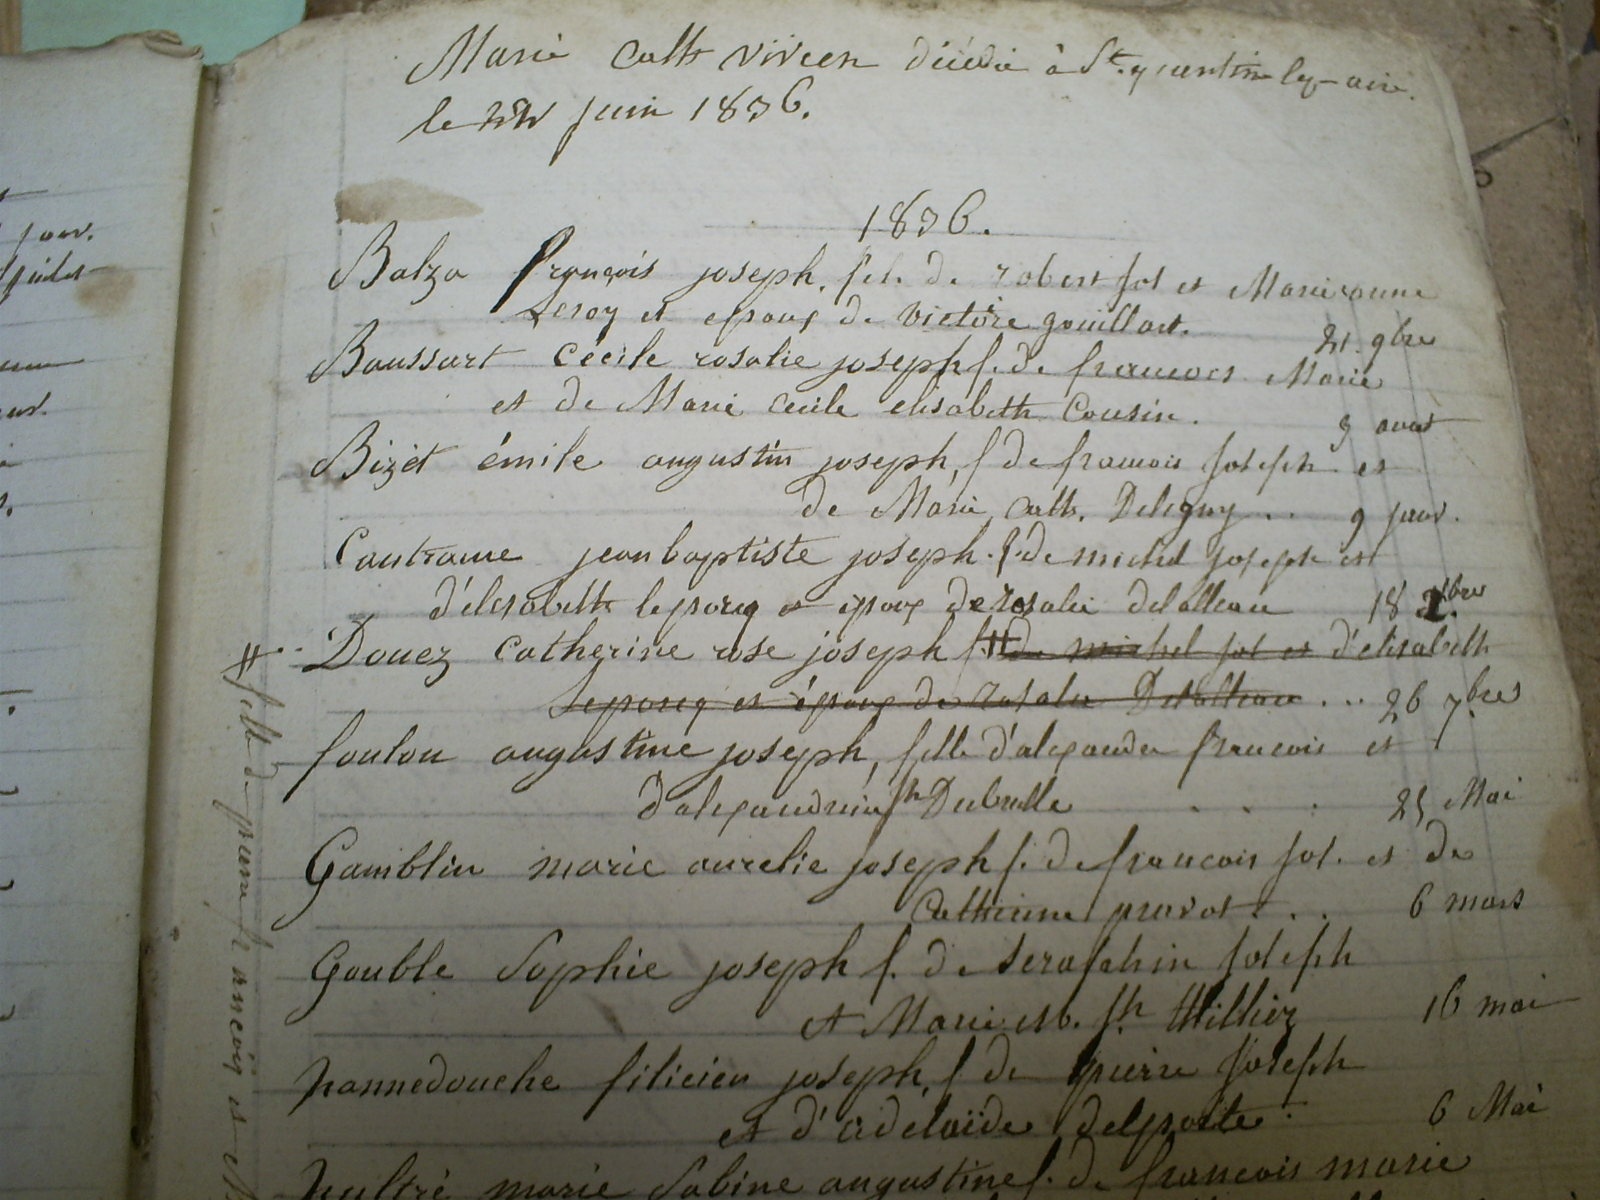 Marie Cath vivien décédée à St. quentin lez-aire.
le 22 juin 1836.
1836.
Balza françois joseph, fils de robert jos et Marie anne
Leroy et epoux de victoire gouillart. 21 9bre
Boussart cécile rosalie joseph f. de francois Marie
et de Marie cecile elisabeth Cousin. 9 aout
Bizèt émile augustin joseph, f de francois joseph et
de Marie Cath. Deligny .. 9 janv.
Cantraine jean baptiste joseph. f. de michel joseph et
d'elisabeth leporcq et epoux de rosalie delalleau 18 bre
Douez Catherine rose joseph f. # de michel jos et d'elisabeth
Leporcq et époux de rosalie Delalleau ... 26 7bre
foulon augustine joseph, fille d'alexandre francois et
d'alexandrine jh Dubrulle . . . 25 Mai
Gamblin marie aurelie joseph f. de francois jos. et de
Catherine pruvost .. 6 mars
Gouble Sophie joseph f. de seraphin joseph
et Marie jh thilliez 16 mai
hannedouche félicien joseph, f de pierre joseph
et d'adélaïde delporte. 6 Mai
marie Sabine augustine f. de francois marie
# fille de pierre francois et
janv.
juillet